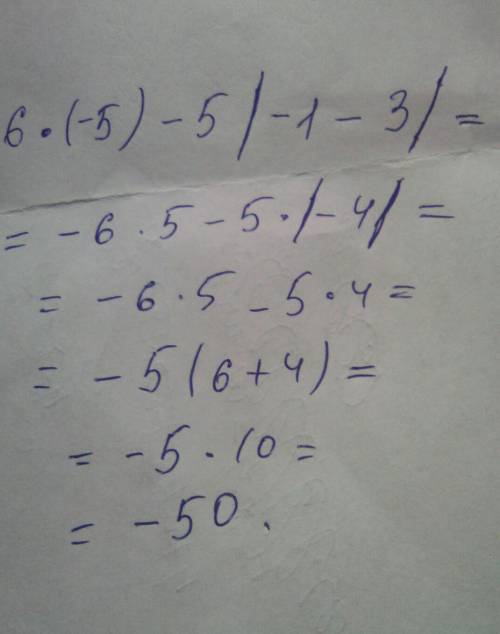 6·(-5) - 5|-1 - 3| =
= -6·5 - 5·|-4| =
= -6·5 - 5·4 =
= -5(6+4) =
= -5·10 =
= -50.